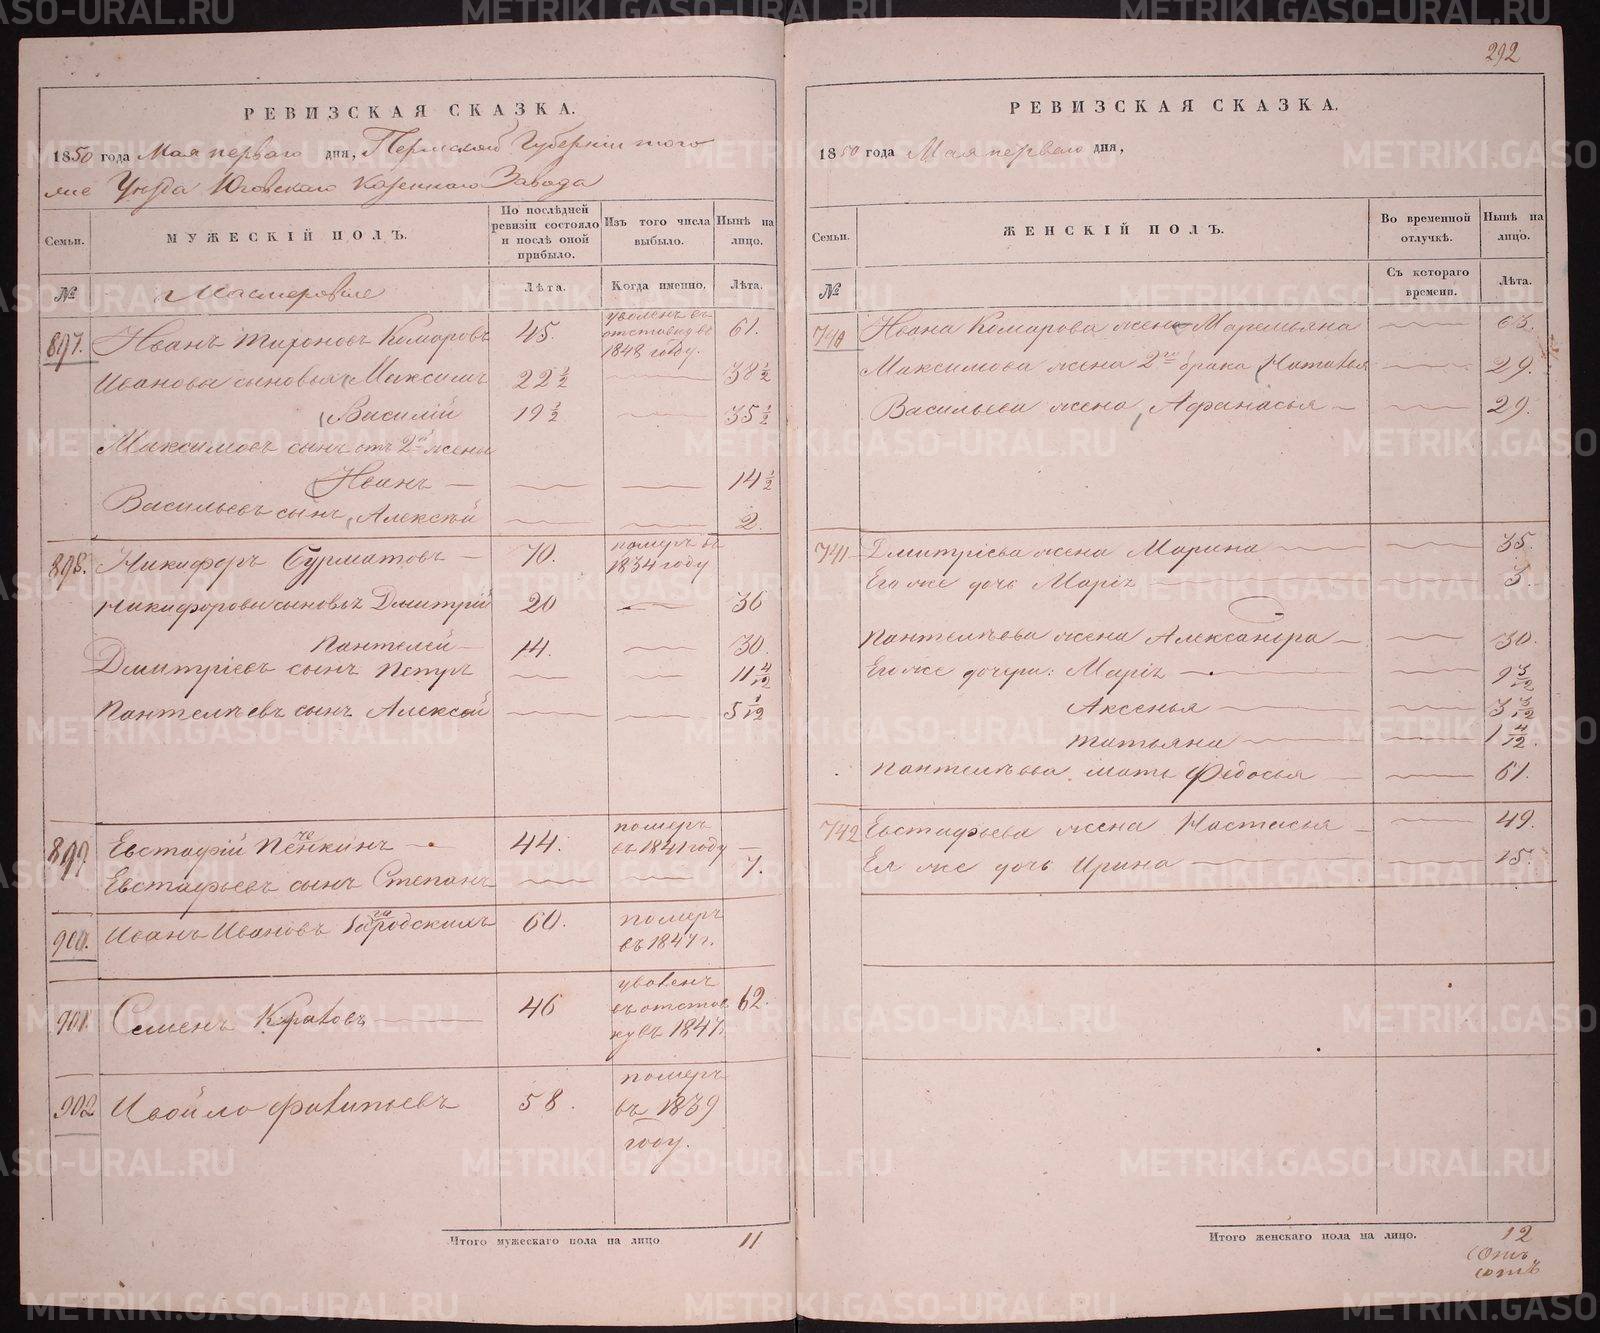 292
РЕВИЗСКАЯ СКАЗКА.
1850 года Мая первого дня, Пермской Губернии того
же Уезда Юговскаго Казеннаго Завода
Семьи.
МУЖЕСКІЙ ПОЛЪ.
По послѣдней ревизіи состояло и послѣ оной прибыло.
Изъ того числа выбыло.
Нынѣ на лицо.
№
Мастеровые
Лѣта.
Когда именно.
Лѣта.
897. Иванъ Тихоновъ Комаровъ 45. уволенъ въ отставку въ 1848 году. 61.
Ивановы сыновья Максимъ 22 1/2 38 1/2
Василій 19 1/2 35 1/2
Максимовъ сынъ отъ 2й жены
Иванъ — 14 1/2
Васильевъ сынъ, Алексѣй 2.
898. Никифоръ Бурматовъ — 70. померъ въ 1834 году
Никифоровы сыновья Дмитрій 20 36
Пантелей 14. 30.
Дмитріевъ сынъ Петръ 11 4/12
Пантелѣевъ сынъ Алексей 5 1/12
899. Евстафій Пенкинъ 44. померъ въ 1841 году —
че
Евстафьевъ сынъ Степанъ 7.
900. Иванъ Ивановъ Городскихъ 60. померъ въ 1847 г.
901. Семенъ Кратовъ 46 уволенъ въ отставку въ 1847 г. 62.
902 58. померъ въ 1839 году.
Итого мужескаго пола на лицо 11
РЕВИЗСКАЯ СКАЗКА.
1850 года Мая первого дня,
Семьи.
ЖЕНСКІЙ ПОЛЪ.
Во временной отлучкѣ.
Нынѣ на лицо.
№
Съ котораго времени.
Лѣта.
740 Ивана Комарова жена Маремьяна 63.
Максимова жена 2го брака Наталья 29.
Васильева жена, Афанасья — 29.
741 Дмитріева жена Марина 35.
Его же дочь Марія 3.
Пантелѣева жена Александра — 30.
Его же дочери: Марія 9 3/12
Аксенья 3 3/12
Татьяна 1 4/12.
Пантелѣева мать Федосья 61.
742 Евстафьева жена Настасья 49.
Ея же дочь Ирина 15.
Итого женскаго пола на лицо. 12
METRIKI.GASO-URAL.RU